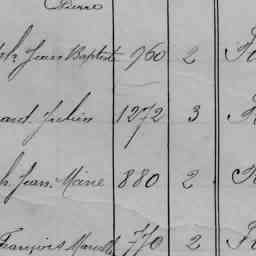 Pierre
ph Jean Baptiste 960 2
ard Julien 1272 3
h Jean Marie 880 2
François Marcell 770 2